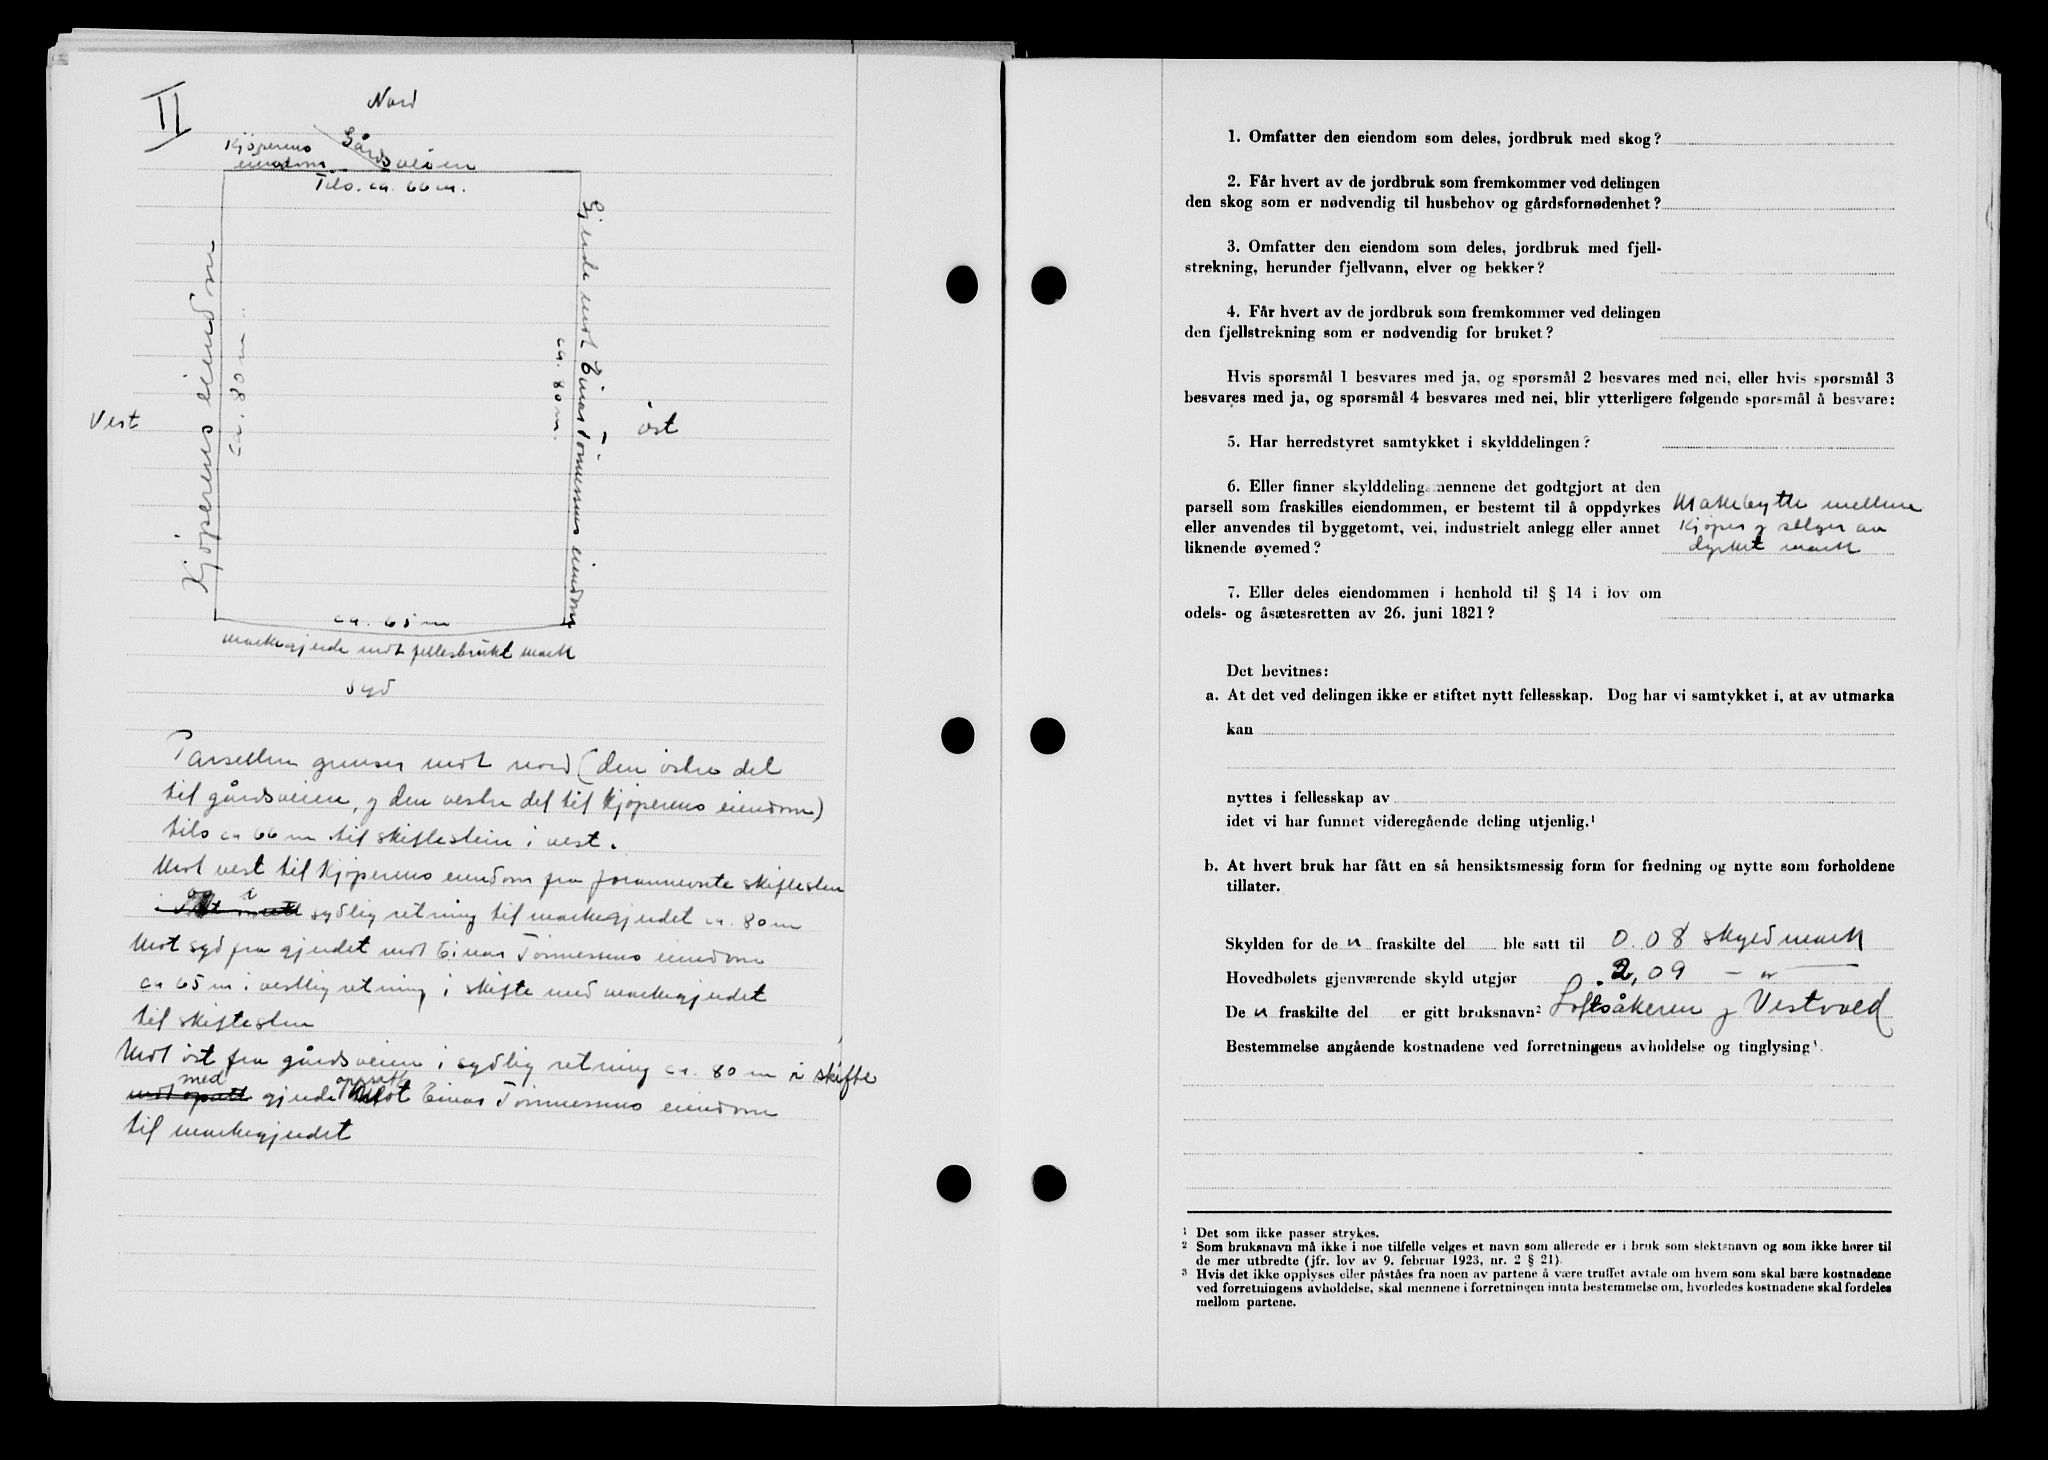 II
Nord
Kjøperens
eiendom
Gårdsveien
Tils. ca. 66 m.
Kjøperens eiendom
ca. 80 m.
Vest
Gjerde mot Einar Tönnessens eiendom
ca. 80 m.
öst
ca. 65 m
markegjerde mot fellesbrukt mark
Syd
Parsellen grenser mot nord (den östre del
til gårdsveien, og den vestre del til Kjøperens eiendom)
tils ca 66 m til skiftestein i vest.
Mot vest til Kjøperens eiendom fra forannevnte skiftesten
og i
sydlig retning til markegjerdet ca. 80 m
Mot syd fra gjerdet mot Einar Tönnessens eiendom
ca 65 m i vestlig retning i skifte med markegjerdet
til skiftesten
Mot öst fra gårdsveien i sydlig retning ca. 80 m i skifte
med opsatt
mot opsatt gjerde mot Einar Tönnessens eiendom
til markegjerdet
1. Omfatter den eiendom som deles, jordbruk med skog?
2. Får hvert av de jordbruk som fremkommer ved delingen
den skog som er nødvendig til husbehov og gårdsfornødenhet?
3. Omfatter den eiendom som deles, jordbruk med fjell-
strekning, herunder fjellvann, elver og bekker?
4. Får hvert av de jordbruk som fremkommer ved delingen
den fjellstrekning som er nødvendig for bruket?
Hvis spørsmål 1 besvares med ja, og spørsmål 2 besvares med nei, eller hvis spørsmål 3
besvares med ja, og spørsmål 4 besvares med nei, blir ytterligere følgende spørsmål å besvare:
5. Har herredstyret samtykket i skylddelingen?
6. Eller finner skylddelingsmennene det godtgjort at den
parsell som fraskilles eiendommen, er bestemt til å oppdyrkes
eller anvendes til byggetomt, vei, industrielt anlegg eller annet
liknende øyemed?
Makebytte mellem
Kjøper og selger av
dyrket mark
7. Eller deles eiendommen i henhold til § 14 i lov om
odels- og åsætesretten av 26. juni 1821?
Det bevitnes:
a. At det ved delingen ikke er stiftet nytt fellesskap. Dog har vi samtykket i, at av utmarka
kan
nyttes i fellesskap av
idet vi har funnet videregående deling utjenlig.¹
b. At hvert bruk har fått en så hensiktsmessig form for fredning og nytte som forholdene
tillater.
Skylden for de n fraskilte del ble satt til 0.08 skyldmark
Hovedbølets gjenværende skyld utgjør 2,09 — " —
De n fraskilte del er gitt bruksnavn² Loftsåkeren og Vestvold
Bestemmelse angående kostnadene ved forretningens avholdelse og tinglysing³.
¹ Det som ikke passer strykes.
² Som bruksnavn må ikke i noe tilfelle velges et navn som allerede er i bruk som slektsnavn og som ikke hører til
de mer utbredte (jfr. lov av 9. februar 1923, nr. 2 § 21).
³ Hvis det ikke opplyses eller påståes fra noen av partene å være truffet avtale om hvem som skal bære kostnadene
ved forretningens avholdelse, skal mennene i forretningen innta bestemmelse om, hvorledes kostnadene skal fordeles
mellom partene.